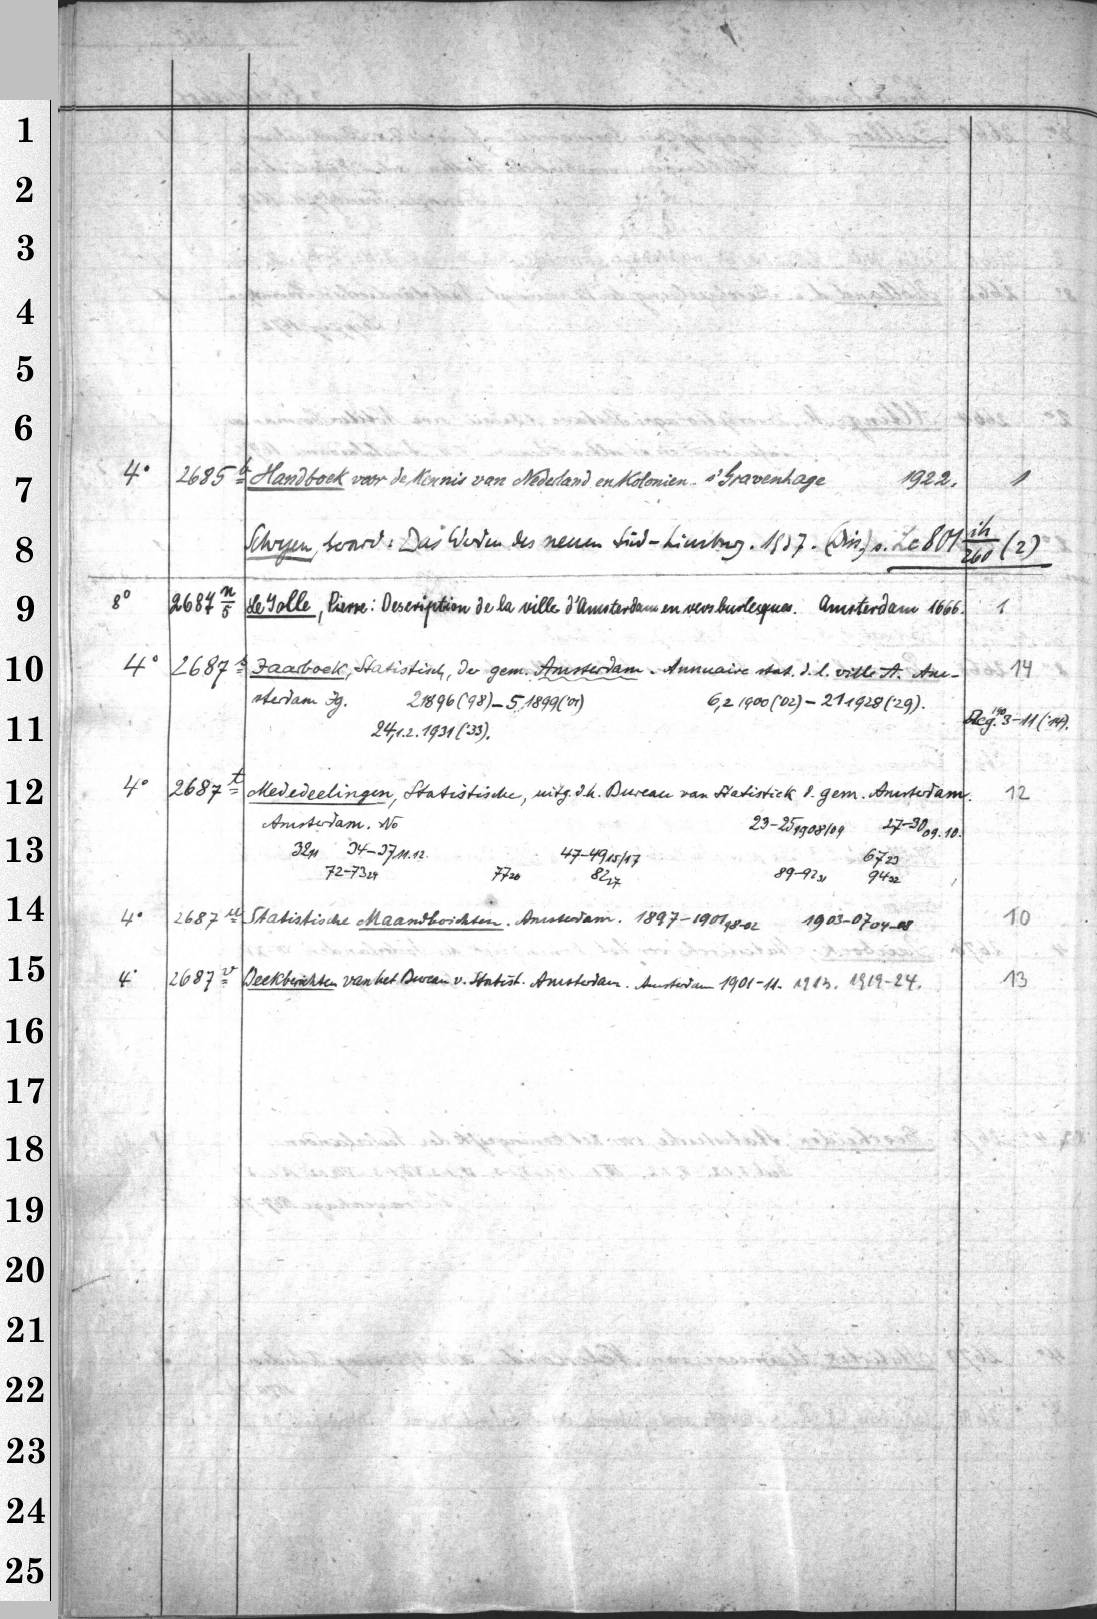 1
2
3
4
5
6
7
8
9
10
11
12
13
14
15
16
17
18
19
20
21
22
23
24
25
4° 2685 b Handboek voor de Kennis van Nederland en Kolonien. s'Gravenhage 1922. 1
Das Werden des neuen Süd-Limburg. 1937. (Diss.) s. Le 801 ih/260 (2)
8° 2687 n/5 Le Jolle, Pierre: Description de la ville d'Amsterdam en vers burlesques. Amsterdam 1666. 1
4° 2687 s Jaarboek, Statistisch, der gem. Amsterdam. Annuaire stat. d. l. ville A. Am-
sterdam Jg. 2 1896 ('98) – 5, 1899 ('01) 6,2 1900 ('02) – 21 1928 ('29). 14
24,1.2. 1931 ('33). Reg. 1903–11 ('14).
4° 2687 t Mededeelingen, Statistische, uitg. d. h. Bureau van Statistiek d. gem. Amsterdam. 12
Amsterdam. No 23–25 1908/09 27–30 09.10.
32 11 34–37 11.12. 47–49 15/17 67 23
72–73 24 77 26 82 27 89–92 31 94 32
4° 2687 u Statistische Maandberichten. Amsterdam. 1897–1901 98–02 1903–07 04–08 10
4° 2687 v Weekberichten van het Bureau v. Statist. Amsterdam. Amsterdam 1901–11. 1913. 1919–24. 13